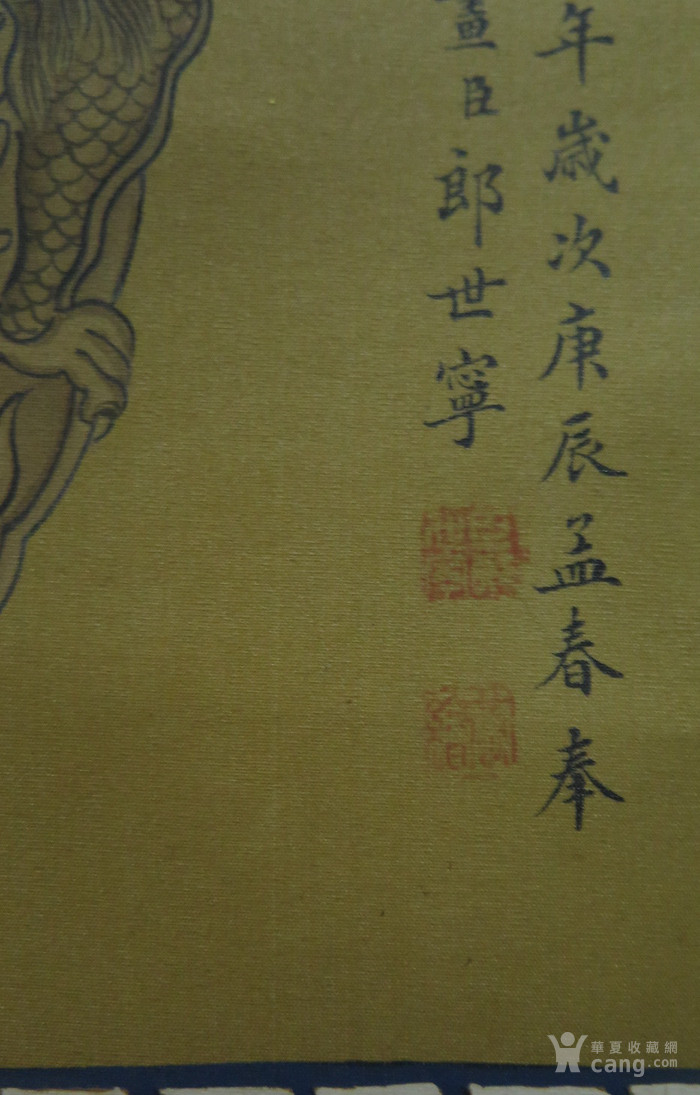 年歲次庚辰孟春奉
畫臣郎世寧
華夏收藏網
cang.com